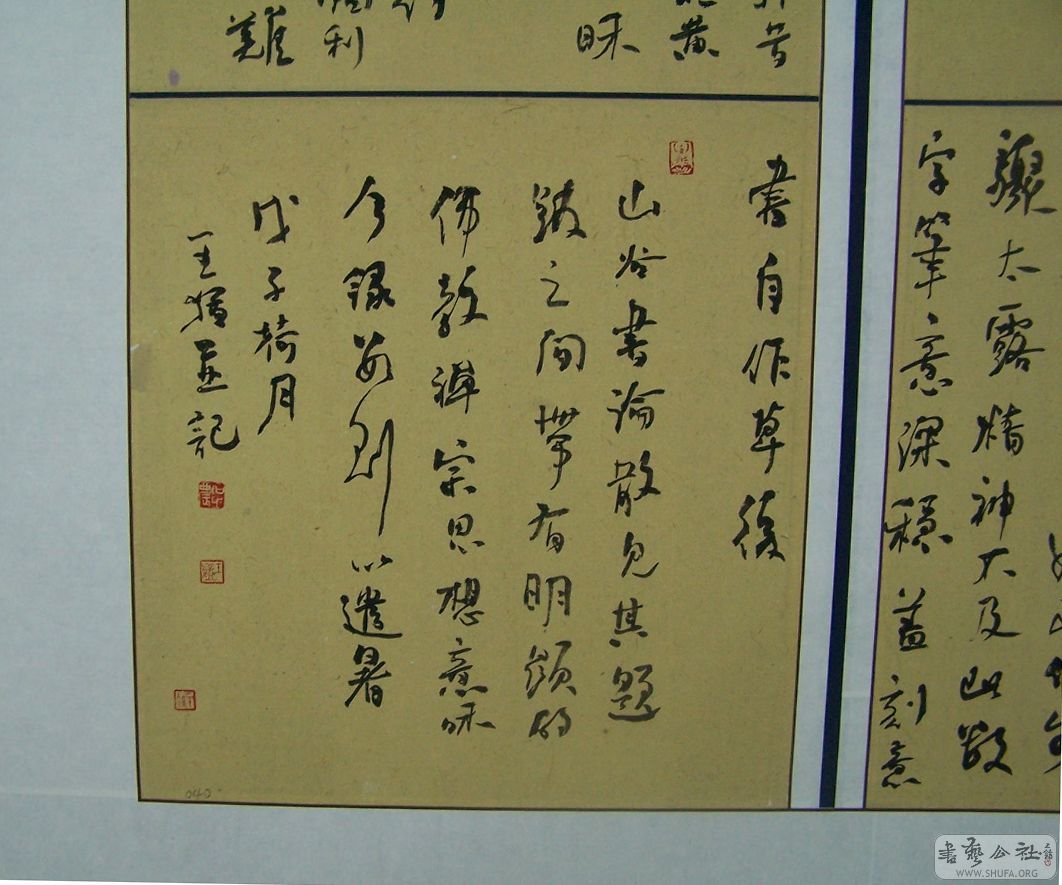 驟太露精神不及此數
字筆意深穩蓋刻意
昔
黄
眛
利
難
書自作草後
山谷書論散見其題
跋之間帶有明顯的
佛教禪宗思想意味
今錄數則以遣暑
戊子荷月
王 並記
040
書藝公社
WWW.SHUFA.ORG